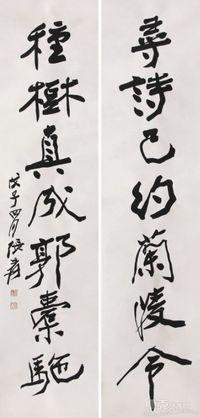 尋詩已約蘭陵令
種樹真成郭橐駞
戊子四月張大千